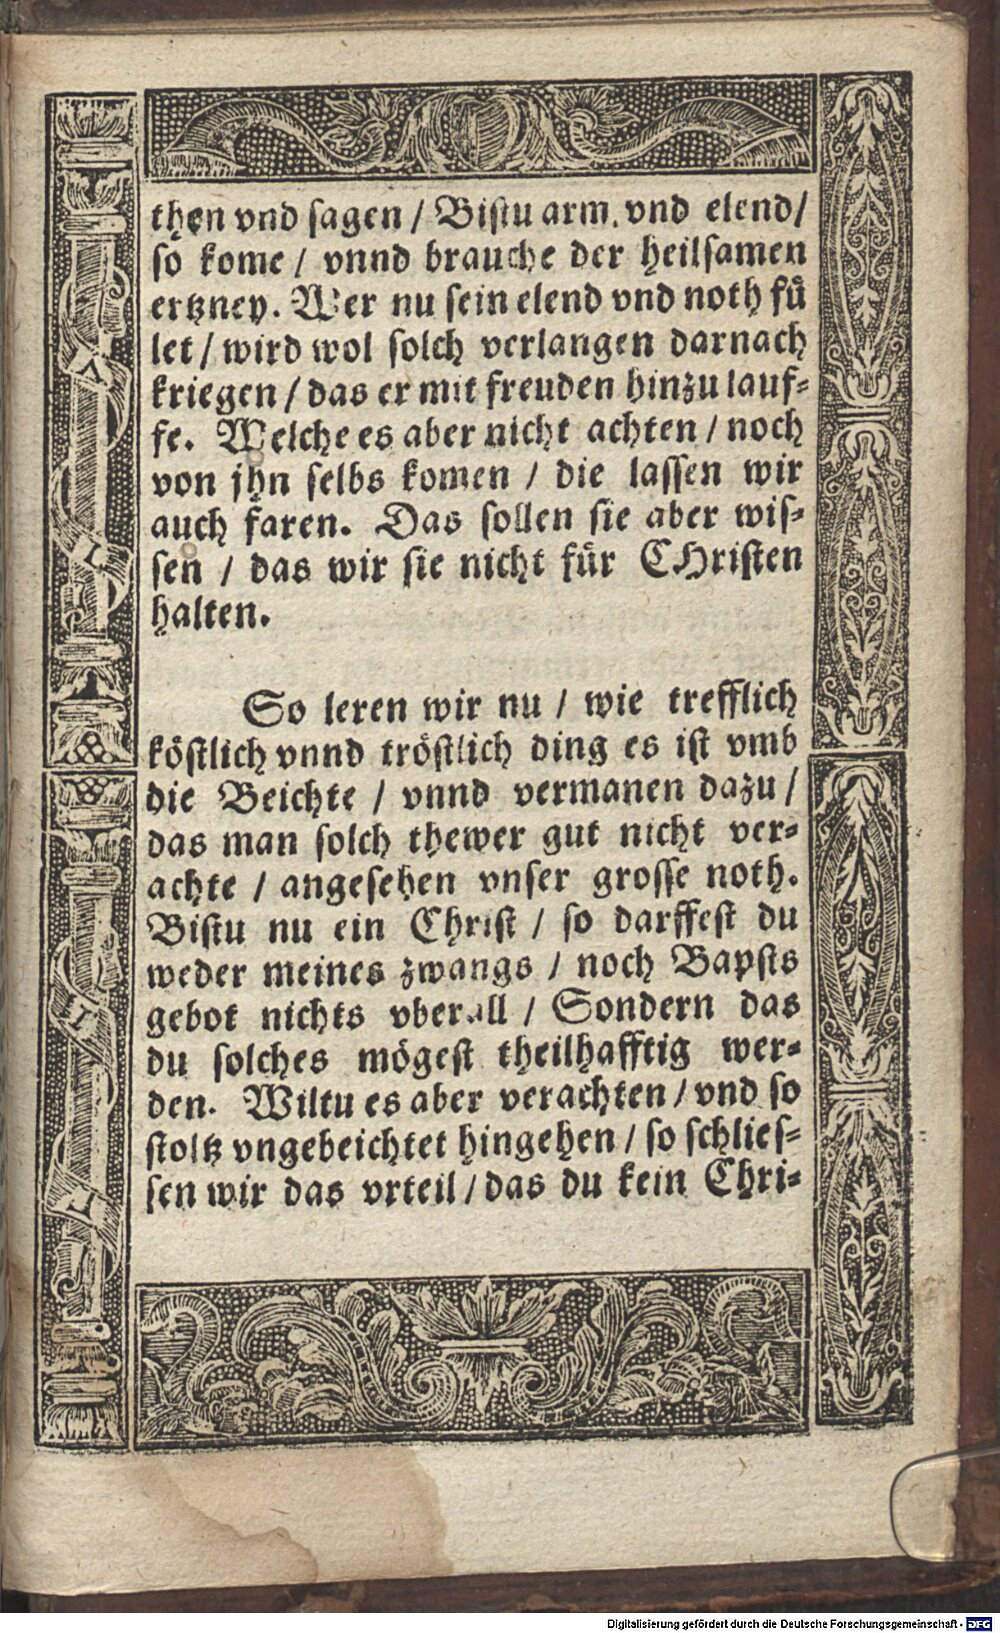 then vnd sagen / Bistu arm vnd elend /
so kome / vnnd brauche der heilsamen
ertzney. Wer nu sein elend vnd noth fuͤ
let / wird wol solch verlangen darnach
kriegen / das er mit freuden hinzu lauf-
fe. Welche es aber nicht achten / noch
von jhn selbs komen / die lassen wir
auch faren. Das sollen sie aber wis-
sen / das wir sie nicht fuͤr CHristen
halten.
So leren wir nu / wie trefflich
koͤstlich vnnd troͤstlich ding es ist vmb
die Beichte / vnnd vermanen dazu /
das man solch thewer gut nicht ver-
achte / angesehen vnser grosse noth.
Bistu nu ein Christ / so darffest du
weder meines zwangs / noch Bapsts
gebot nichts vberall / Sondern das
du solches moͤgest theilhafftig wer-
den. Wiltu es aber verachten / vnd so
stoltz vngebeichtet hingehen / so schlies-
sen wir das vrteil / das du kein Chri-
Digitalisierung gefördert durch die Deutsche Forschungsgemeinschaft - DFG